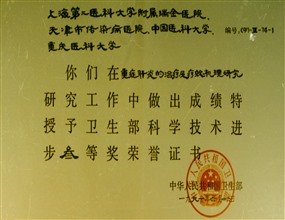 上海第二医科大学附属瑞金医院、
天津市传染病医院、中国医科大学、
重庆医科大学
编号:(9)-Ⅲ-16-1
你们在重症肝炎的治疗及疗效机理研究
研究工作中做出成绩特
授予卫生部科学技术进
步叁等奖荣誉证书
中华人民共和国卫生部